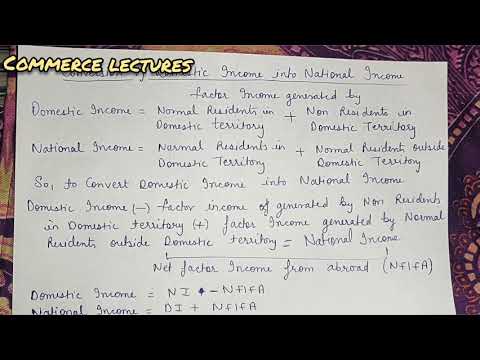 COMMERCE LECTURES
Conversion of Domestic Income into National Income
factor Income generated by
Domestic Income = Normal Residents in Domestic territory + Non Residents in Domestic Territory
National Income = Normal Residents in Domestic Territory + Normal Residents outside Domestic Territory
So, to Convert Domestic Income into National Income
Domestic Income (-) factor income of generated by Non Residents
in Domestic territory (+) factor Income generated by Normal
Residents outside Domestic territory = National Income
Net factor Income from abroad (NFIFA)
Domestic Income = NI - NFIFA
National Income = DI + NFIFA